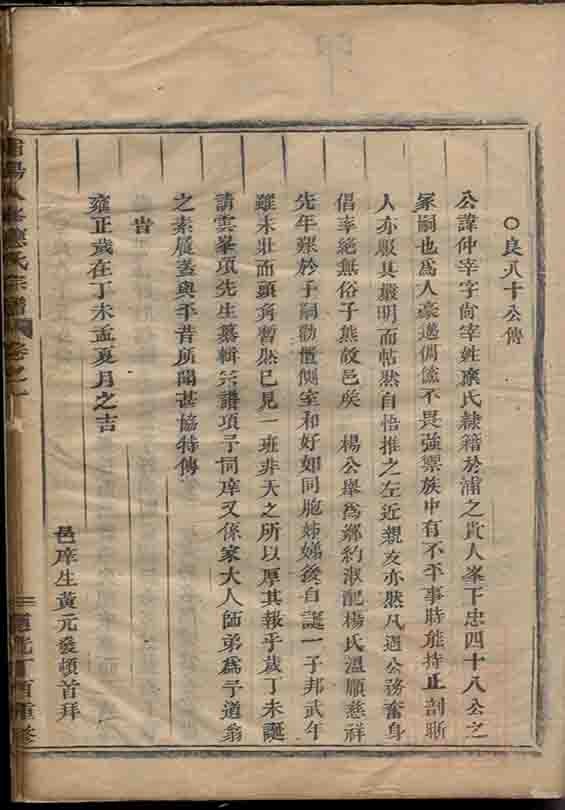 ○良八十公傳
公諱仲宰字尙宰姓應氏隸籍於浦之貴人峯下忠四十八公之
冢嗣也爲人豪邁倜儻不畏強禦族中有不平事時能持正剖斷
人亦服其嚴明而帖然自悟推之左近親友亦然凡遇公務奮身
倡率絕無俗子態故邑矦 楊公舉爲鄉約淑配楊氏溫順慈祥
先年艱於子嗣勸置側室和好如同胞姊娣後自誕一子邦武年
雖未壯而頭角暫然已見一班非天之所以厚其報乎歲丁未誕
請雲峯項先生纂輯宗譜項子同庠又係家大人師弟爲予道翁
之素履蓋與平昔所聞甚協特傳
旹
雍正歲在丁未孟夏月之吉
邑庠生黃元發頓首拜
人峯應氏宗譜 卷之一
丁酉重修